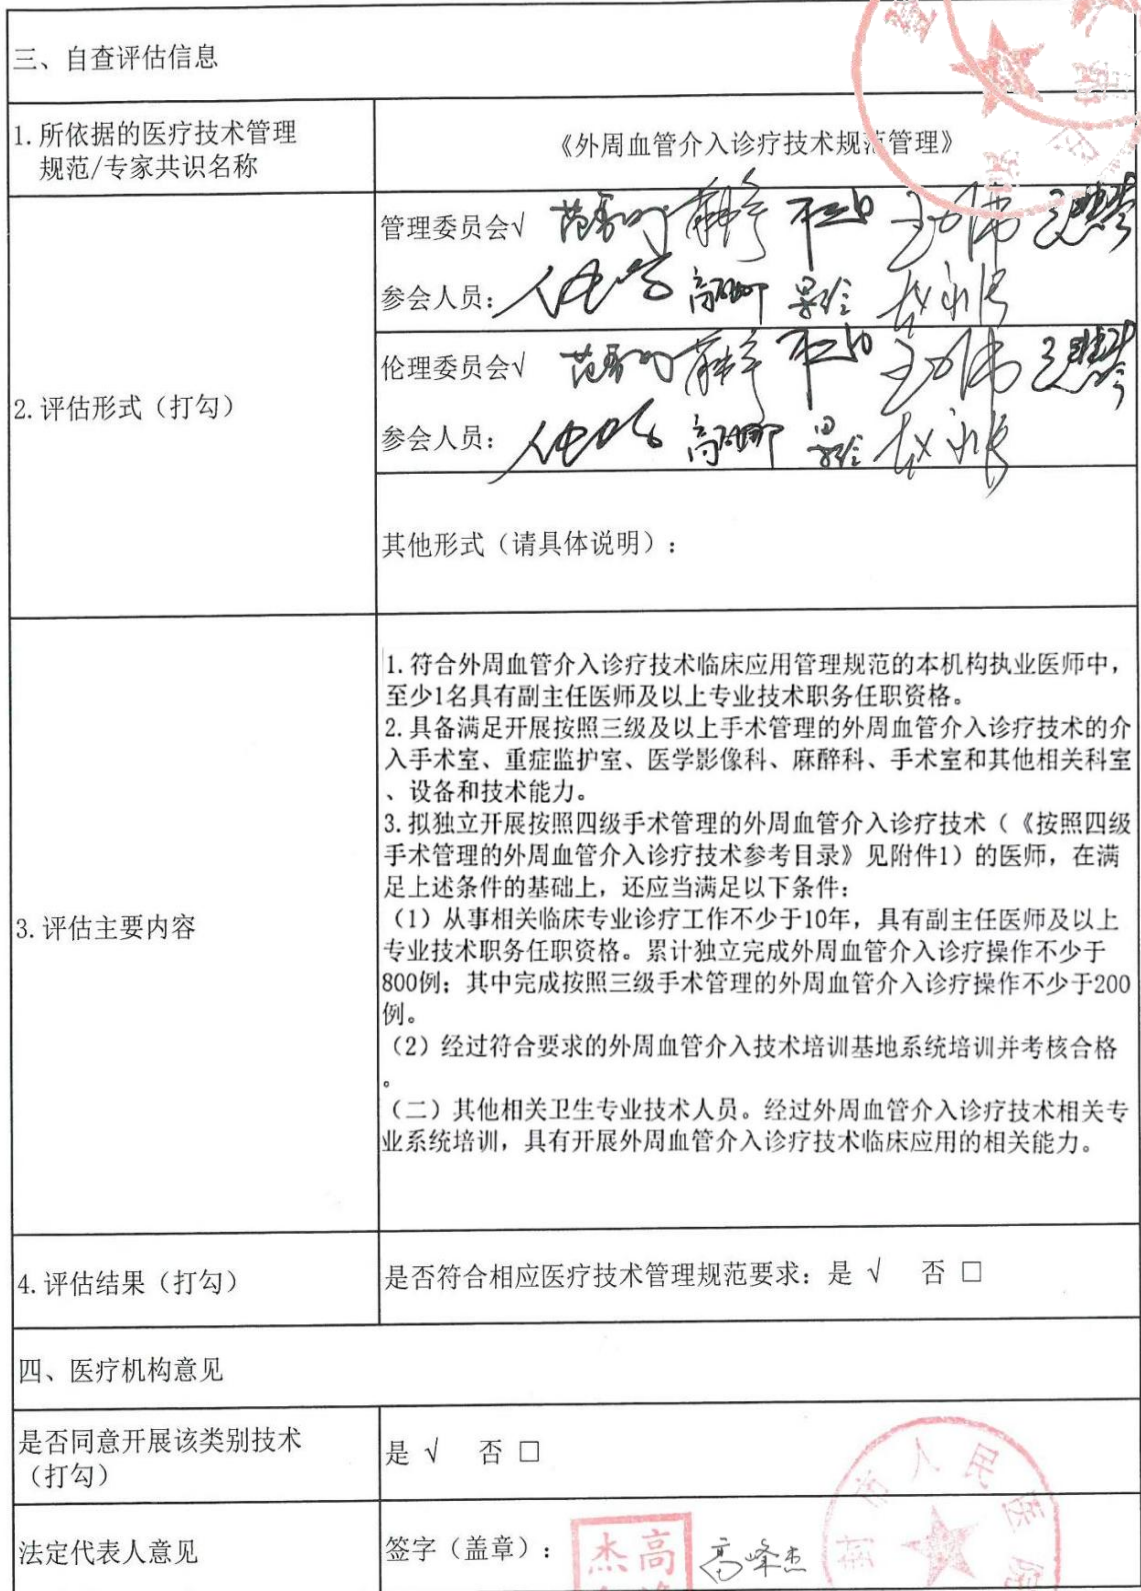 三、自查评估信息
1.所依据的医疗技术管理
规范/专家共识名称
《外周血管介入诊疗技术规范管理》
2.评估形式（打勾）
管理委员会√
参会人员：
伦理委员会√
参会人员：
其他形式（请具体说明）：
3.评估主要内容
1.符合外周血管介入诊疗技术临床应用管理规范的本机构执业医师中，
至少1名具有副主任医师及以上专业技术职务任职资格。
2.具备满足开展按照三级及以上手术管理的外周血管介入诊疗技术的介
入手术室、重症监护室、医学影像科、麻醉科、手术室和其他相关科室
、设备和技术能力。
3.拟独立开展按照四级手术管理的外周血管介入诊疗技术（《按照四级
手术管理的外周血管介入诊疗技术参考目录》见附件1）的医师，在满
足上述条件的基础上，还应当满足以下条件：
（1）从事相关临床专业诊疗工作不少于10年，具有副主任医师及以上
专业技术职务任职资格。累计独立完成外周血管介入诊疗操作不少于
800例；其中完成按照三级手术管理的外周血管介入诊疗操作不少于200
例。
（2）经过符合要求的外周血管介入技术培训基地系统培训并考核合格
。
（二）其他相关卫生专业技术人员。经过外周血管介入诊疗技术相关专
业系统培训，具有开展外周血管介入诊疗技术临床应用的相关能力。
4.评估结果（打勾）
是否符合相应医疗技术管理规范要求：是 √ 否 □
四、医疗机构意见
是否同意开展该类别技术
（打勾）
是 √ 否 □
法定代表人意见
签字（盖章）：
高
杰
高峰杰
封市人民医院